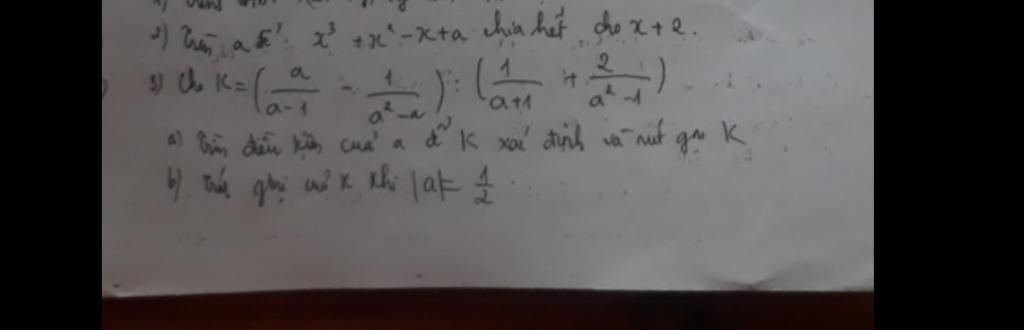 2) Tìm a để x³ + x² - x + a chia hết cho x + 2.
3) Cho K = (a/(a-1) - 1/(a²-a)) : (1/(a+1) + 2/(a²-1))
a) Tìm điều kiện của a để K xác định và rút gọn K
b) Tính gtrị của K khi |a| = 1/2